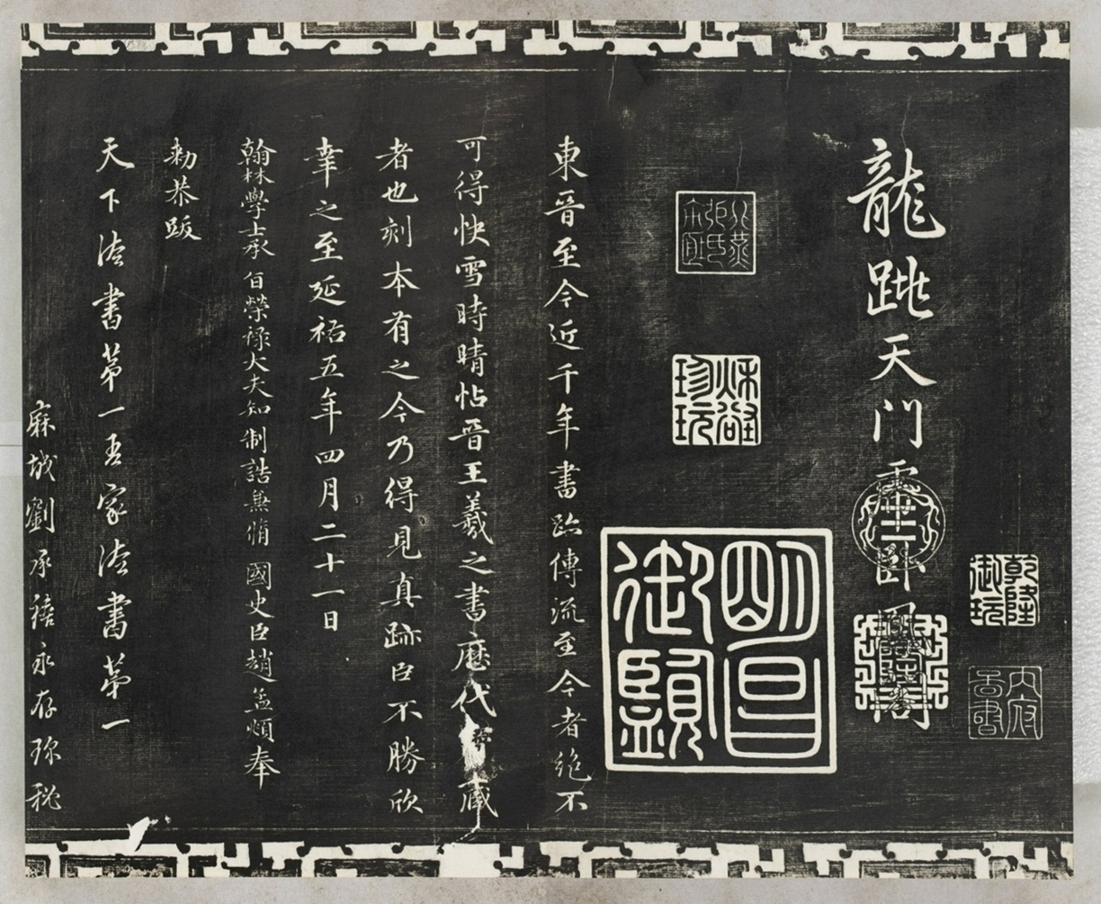 乾隆御玩
龍跳天門虎卧鳳閣
秋壑珍玩
明昌御覽
東晉至今近千年書跡傳流至今者絶不
可得快雪時晴帖晉王羲之書歷代藏
者也刻本有之今乃得見真跡臣不勝欣
幸之至延祐五年四月二十一日
翰林學士承旨榮祿大夫知制誥兼脩國史臣趙孟頫奉
勅恭跋
天下法書第一吾家法書第一
麻城劉承禧永存珎秘